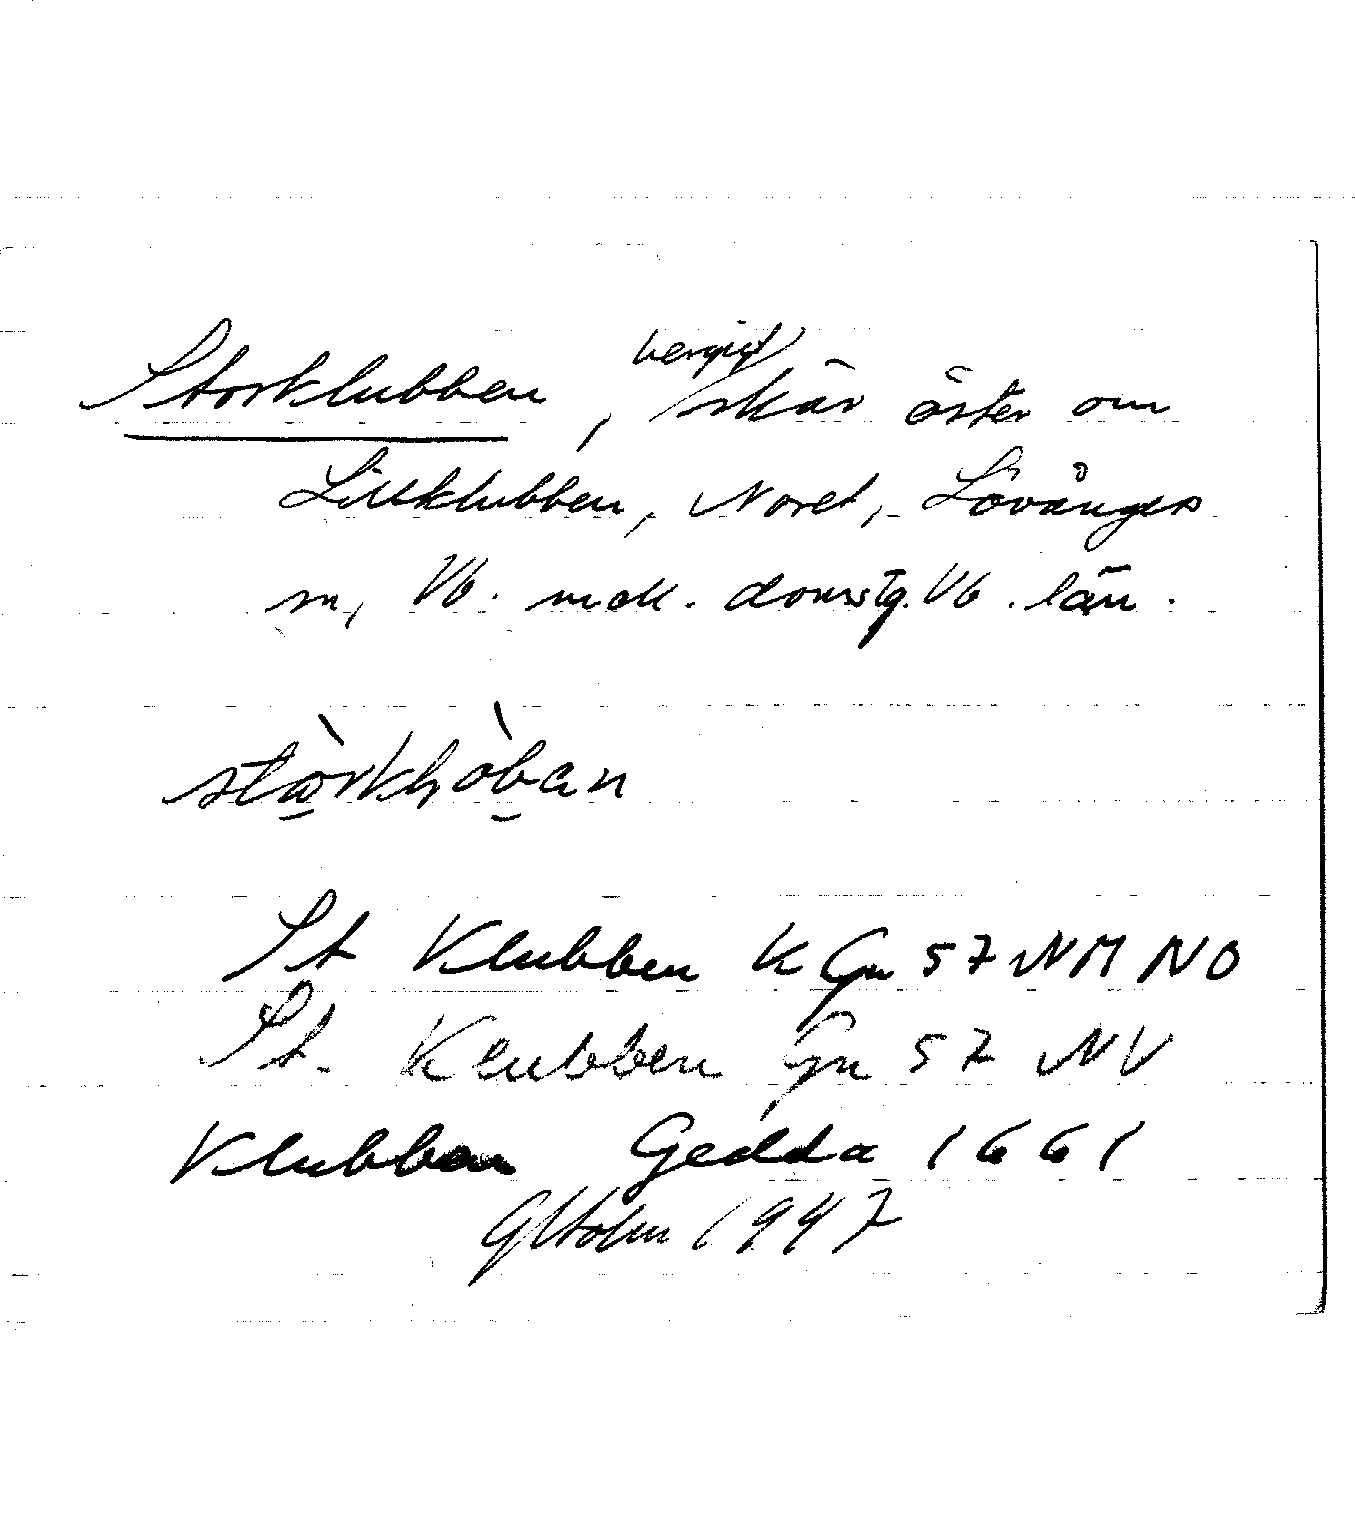 Storklubben, bergigt skär öster om
Lillklubben, Noret, Lövångers
sn, Vb. med. domstg. Vb. län.
St Klubben K Gn 57 NM NO
St. Klubben Gn 57 NV
Klubben Gedda 1661
GHolm 1947